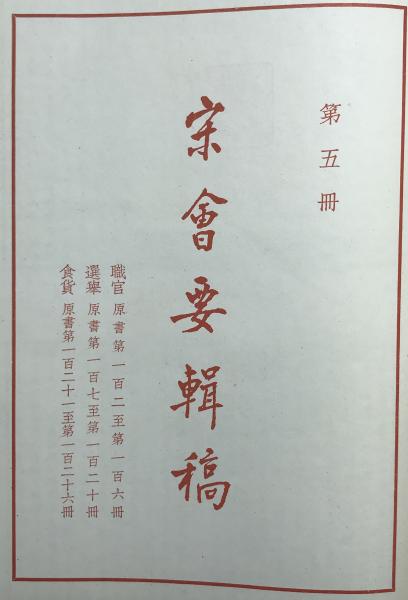 第五冊
宋會要輯稿
職官 原書第一百二至第一百六冊
選舉 原書第一百七至第一百二十冊
食貨 原書第一百二十一至第一百二十六冊